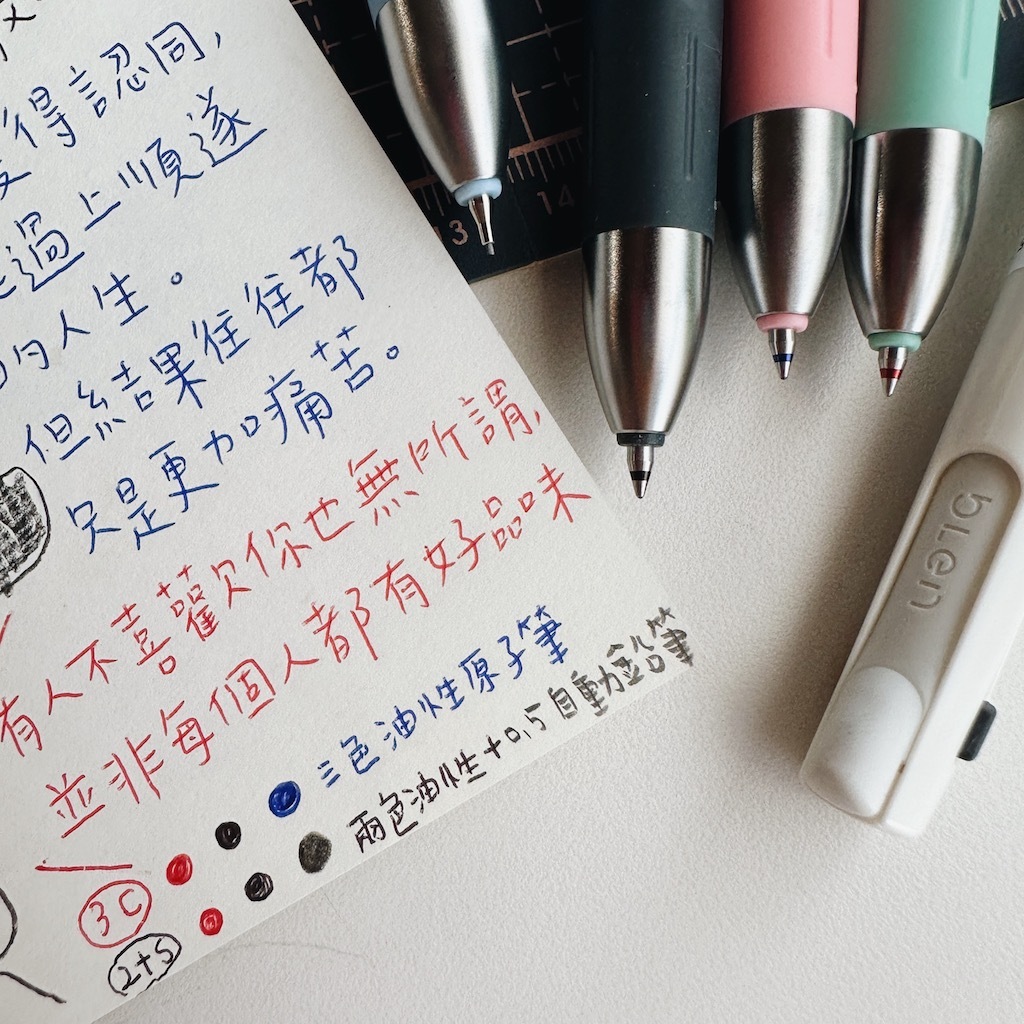 得認同,
過上順遂
的人生。
但結果往往都
只是更加痛苦。
有人不喜歡你也無所謂,
並非每個人都有好品味
三色油性原子筆
兩色油性+0.5自動鉛筆
3C
2+S
13
14
bLen